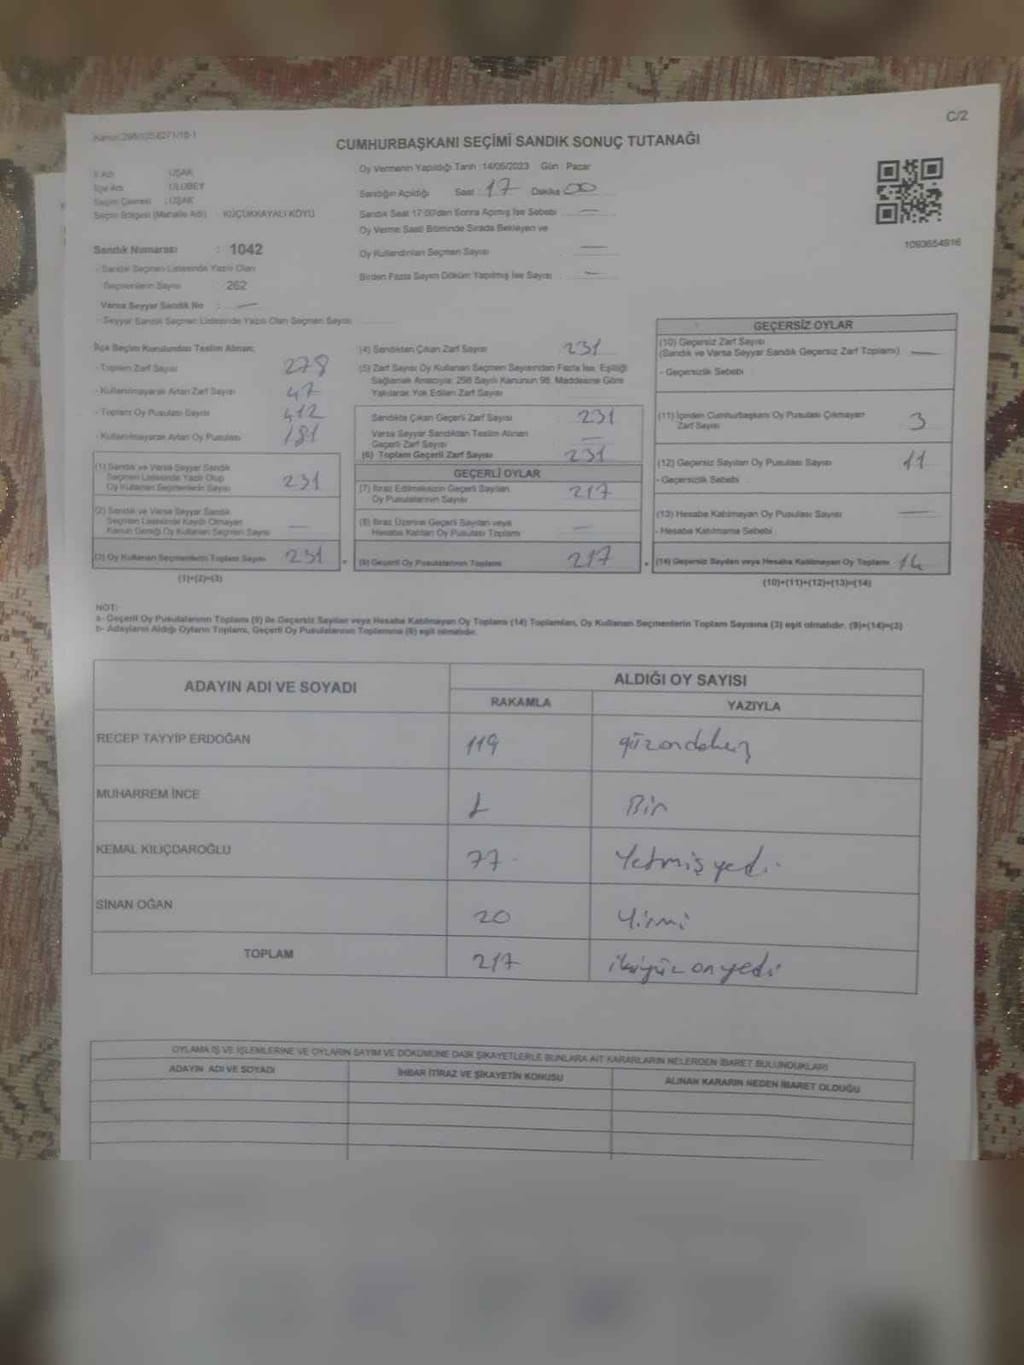 C/2
CUMHURBAŞKANI SEÇİMİ SANDIK SONUÇ TUTANAĞI
İl Adı : UŞAK
İlçe Adı : ULUBEY
Seçim Çevresi : UŞAK
Seçim Bölgesi (Mahalle Adı) KÜÇÜKKAYALI KÖYÜ
Sandık Numarası : 1042
- Sandık Seçmen Listesinde Yazılı Olan
Seçmenlerin Sayısı : 262
Varsa Seyyar Sandık No : —
- Seyyar Sandık Seçmen Listesinde Yazılı Olan Seçmen Sayısı
Oy Vermenin Yapıldığı Tarih :14/05/2023 Gün : Pazar
Sandığın Açıldığı Saat : 17 Dakika 00
Sandık Saat 17:00'den Sonra Açılmış İse Sebebi —
Oy Verme Saati Bitiminde Sırada Bekleyen ve
Oy Kullandırılan Seçmen Sayısı —
Birden Fazla Sayım Döküm Yapılmış İse Sayısı —
1093654916
İlçe Seçim Kurulundan Teslim Alınan;
- Toplam Zarf Sayısı 278
- Kullanılmayarak Artan Zarf Sayısı 47
- Toplam Oy Pusulası Sayısı 412
- Kullanılmayarak Artan Oy Pusulası 181
(1) Sandık ve Varsa Seyyar Sandık
Seçmen Listesinde Yazılı Olup
Oy Kullanan Seçmenlerin Sayısı 231
(2) Sandık ve Varsa Seyyar Sandık
Seçmen Listesinde Kayıtlı Olmayan
Kanun Gereği Oy Kullanan Seçmen Sayısı —
(3) Oy Kullanan Seçmenlerin Toplam Sayısı 231
(1)+(2)=(3)
(4) Sandıktan Çıkan Zarf Sayısı 231
(5) Zarf Sayısı Oy Kullanan Seçmen Sayısından Fazla İse, Eşitliği
Sağlamak Amacıyla; 298 Sayılı Kanunun 98. Maddesine Göre
Yakılarak Yok Edilen Zarf Sayısı
Sandıkta Çıkan Geçerli Zarf Sayısı 231
Varsa Seyyar Sandıktan Teslim Alınan
Geçerli Zarf Sayısı —
(6) Toplam Geçerli Zarf Sayısı 231
GEÇERLİ OYLAR
(7) İtiraz Edilmeksizin Geçerli Sayılan
Oy Pusulalarının Sayısı 217
(8) İtiraz Üzerine Geçerli Sayılan veya
Hesaba Katılan Oy Pusulası Toplamı —
(9) Geçerli Oy Pusulalarının Toplamı 217
GEÇERSİZ OYLAR
(10) Geçersiz Zarf Sayısı
(Sandık ve Varsa Seyyar Sandık Geçersiz Zarf Toplamı) —
- Geçersizlik Sebebi
(11) İçinden Cumhurbaşkanı Oy Pusulası Çıkmayan
Zarf Sayısı 3
(12) Geçersiz Sayılan Oy Pusulası Sayısı 11
- Geçersizlik Sebebi
(13) Hesaba Katılmayan Oy Pusulası Sayısı —
- Hesaba Katılmama Sebebi
(14) Geçersiz Sayılan veya Hesaba Katılmayan Oy Toplamı 14
(10)+(11)+(12)+(13)=(14)
NOT:
a- Geçerli Oy Pusulalarının Toplamı (9) ile Geçersiz Sayılan veya Hesaba Katılmayan Oy Toplamı (14) Toplamları, Oy Kullanan Seçmenlerin Toplam Sayısına (3) eşit olmalıdır. (9)+(14)=(3)
b- Adayların Aldığı Oyların Toplamı, Geçerli Oy Pusulalarının Toplamına (9) eşit olmalıdır.
ADAYIN ADI VE SOYADI ALDIĞI OY SAYISI
RAKAMLA YAZIYLA
RECEP TAYYİP ERDOĞAN 119
MUHARREM İNCE 1 Bir
KEMAL KILIÇDAROĞLU 77 Yetmiş yedi
SİNAN OĞAN 20 Yirmi
TOPLAM 217 ikiyüz onyedi
OYLAMA İŞ VE İŞLEMLERİNE VE OYLARIN SAYIM VE DÖKÜMÜNE DAİR ŞİKAYETLERLE BUNLARA AİT KARARLARIN NELERDEN İBARET BULUNDUKLARI
ADAYIN ADI VE SOYADI İHBAR İTİRAZ VE ŞİKAYETİN KONUSU ALINAN KARARIN NEDEN İBARET OLDUĞU